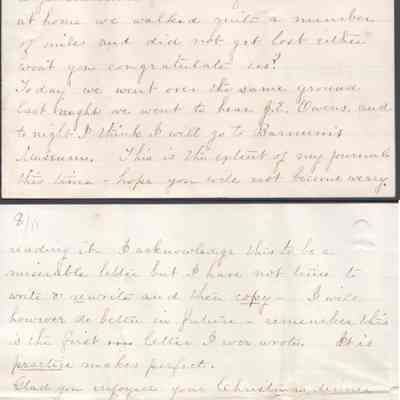 at home we walked quite a number
of miles and did not get lost either
wont you congratulate us?
Today we went over the same ground
Last night we went to hear J.E. Owens, and
to night I think I will go to Barnum's
Museum. This is the extent of my journal
this time - hope you will not become weary
8/11
reading it. I acknowledge this to be a
miserable letter but I have not time to
write & rewrite and then copy - I will
however do better in future - remember this
is the first letter I ever wrote. It is
practice makes perfect.
Glad you enjoyed your Christmas dinner -